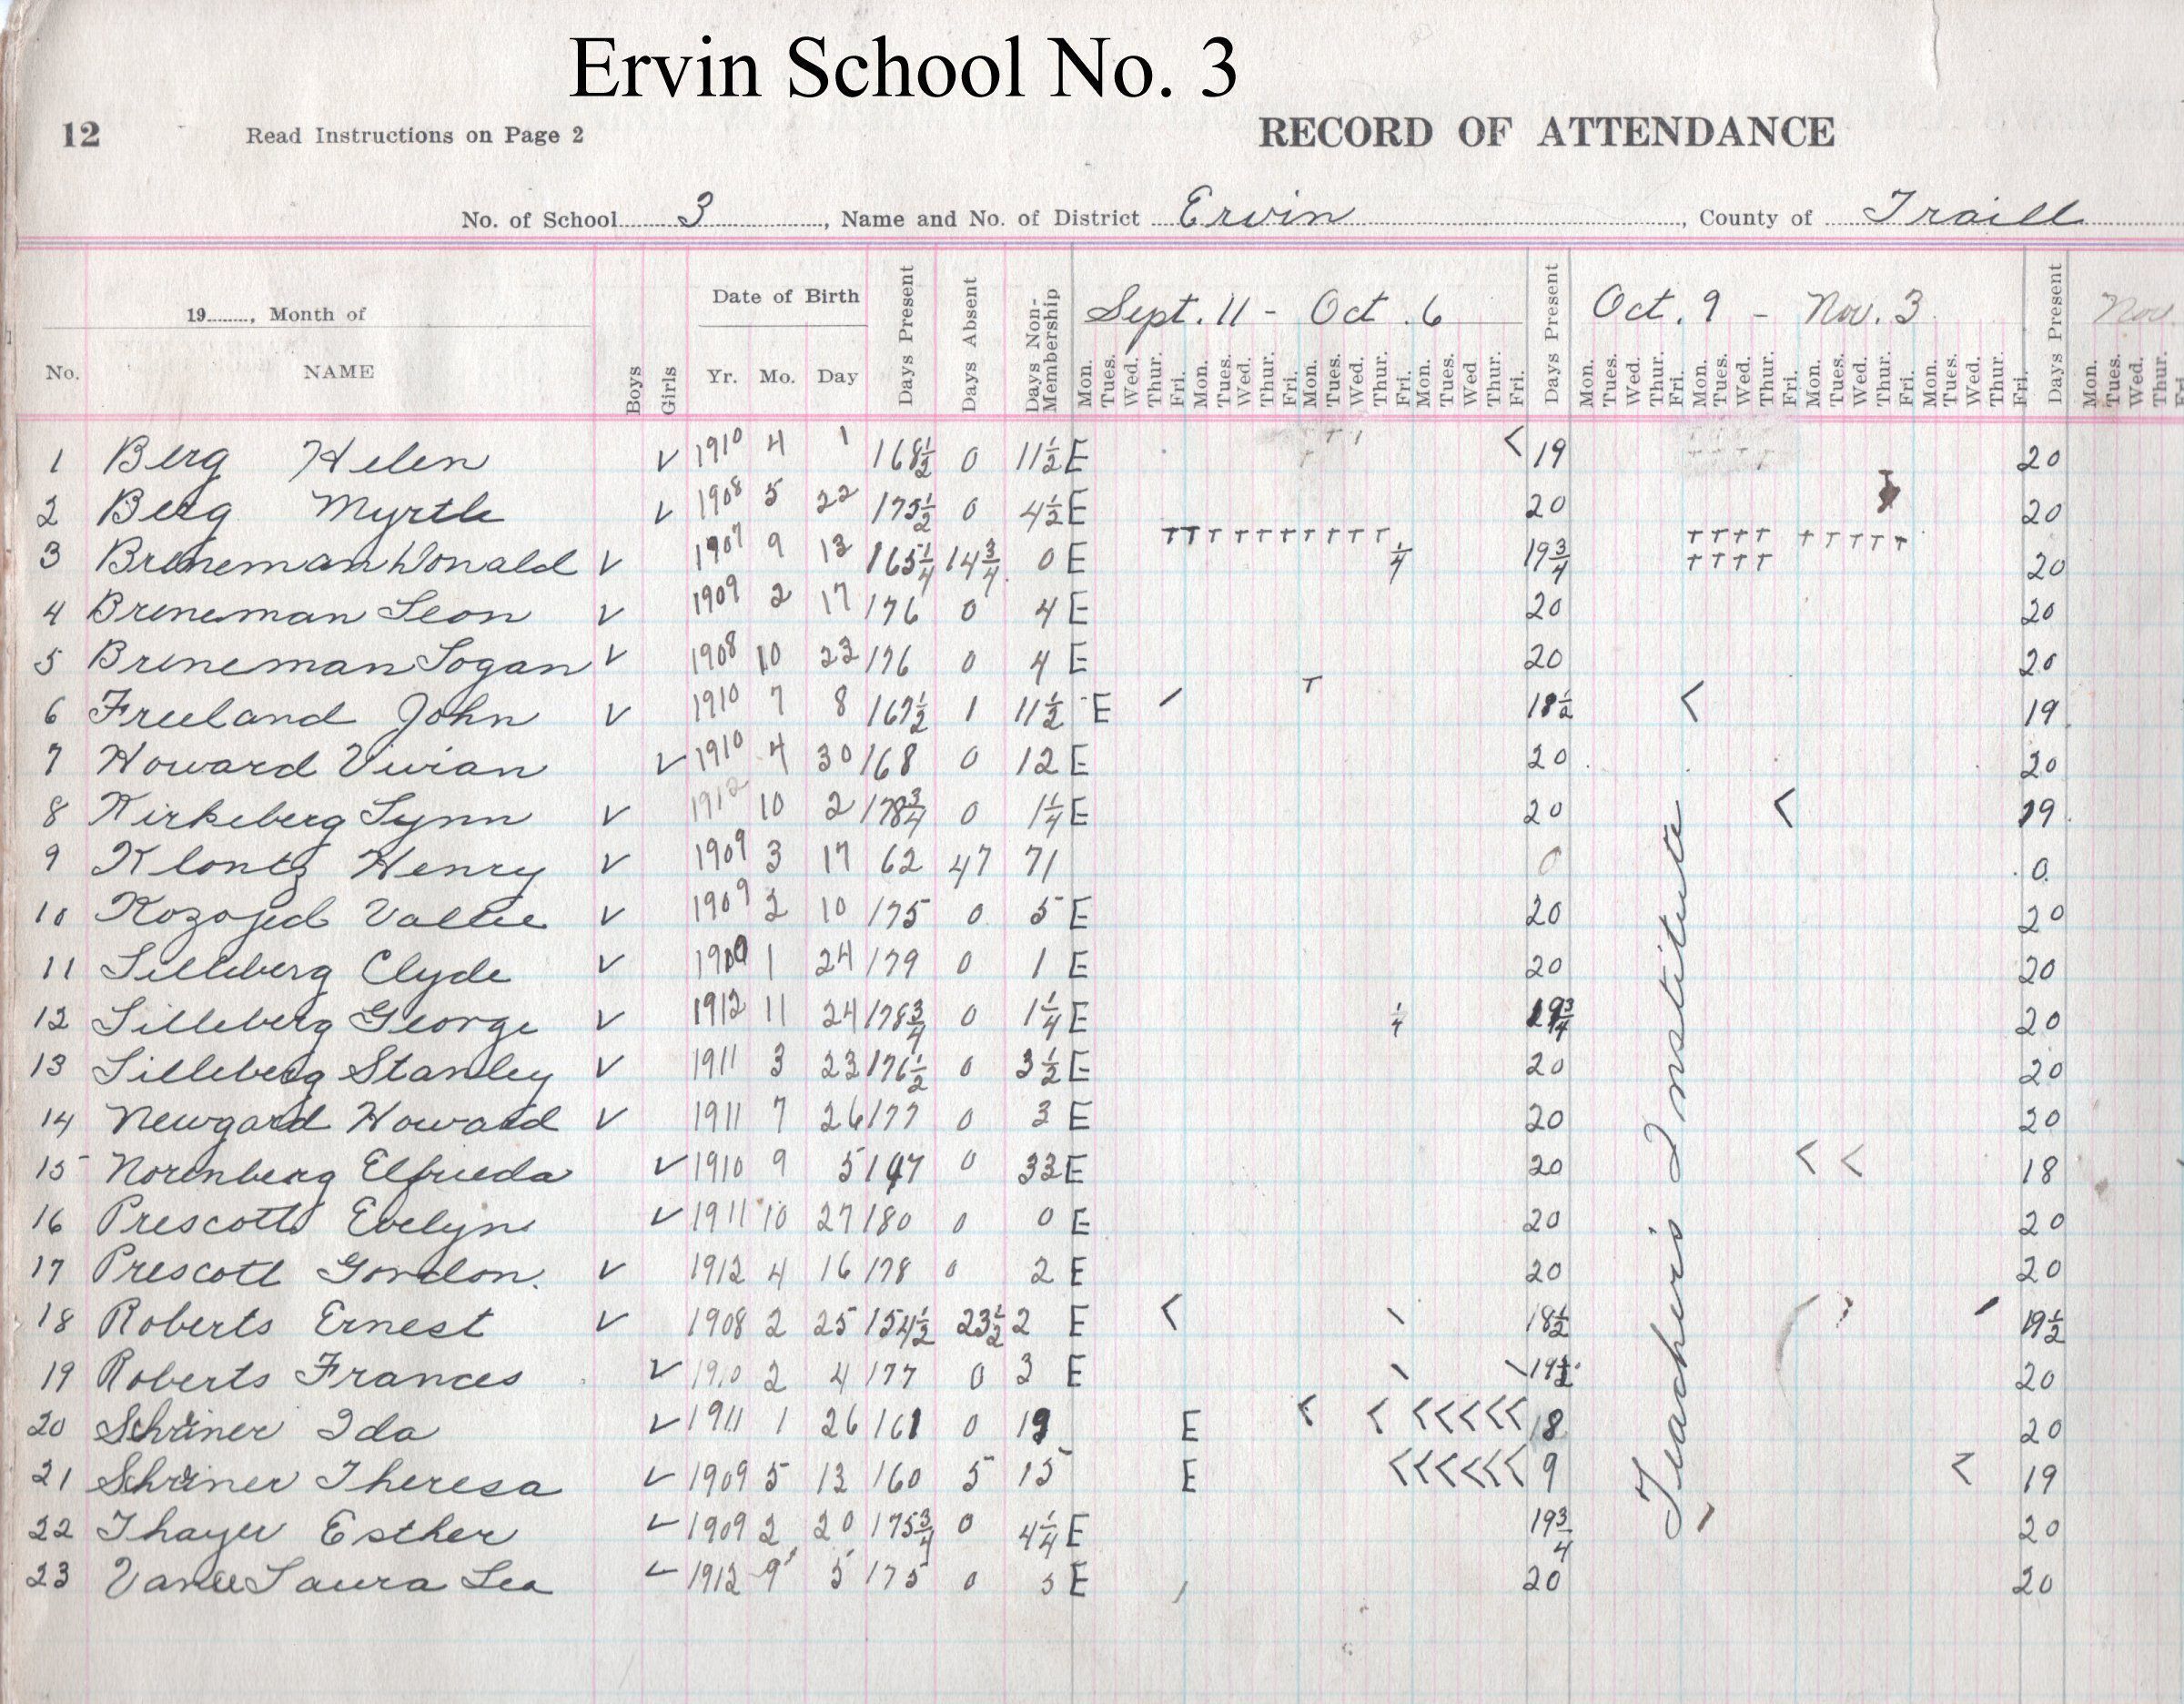 Ervin School No. 3
12 Read Instructions on Page 2 RECORD OF ATTENDANCE
No. of School 3, Name and No. of District Ervin, County of Traill
19, Month of Date of Birth Days Present Days Absent Days Non-Membership Sept. 11 - Oct. 6 Days Present Oct. 9 - Nov. 3 Days Present Nov
No. NAME Boys Girls Yr. Mo. Day Mon. Tues. Wed. Thur. Fri. Mon. Tues. Wed. Thur. Fri. Mon. Tues. Wed. Thur. Fri. Mon. Tues. Wed Thur. Fri. Mon. Tues. Wed. Thur. Fri. Mon. Tues. Wed. Thur. Fri. Mon. Tues. Wed. Thur. Fri. Mon. Tues. Wed. Thur. Fri. Mon. Tues. Wed. Thur.
1 Berg Helen V 1910 4 1 168½ 0 11½ E < 19 20
2 Berg Myrtle V 1908 5 22 175½ 0 4½ E 20 20
T T T T T T T T T T T T T T T T T T T
3 Breneman Donald V 1907 9 13 165¼ 14¾ 0 E ¼ 19¾ T T T T 20
4 Breneman Leon V 1909 2 17 176 0 4 E 20 20
5 Breneman Logan V 1908 10 23 176 0 4 E 20 20
6 Freeland John V 1910 7 8 167½ 1 11½ E / T 18½ < 19
7 Howard Vivian V 1910 4 30 168 0 12 E 20 20
8 Kirkeberg Lynn V 1912 10 2 178¾ 0 1¼ E 20 < 19
9 Klontz Henry V 1909 3 17 62 47 71 0 0
10 Kozojed Vallie V 1909 2 10 175 0 5 E 20 20
11 Lilleberg Clyde V 1909 1 24 179 0 1 E 20 20
12 Lilleberg George V 1912 11 24 178¾ 0 1¼ E ¼ 19¾ 20
13 Lilleberg Stanley V 1911 3 23 176½ 0 3½ E 20 20
14 Newgard Howard V 1911 7 26 177 0 3 E 20 20
15 Norenberg Elfrieda V 1910 9 5 147 0 33 E 20 < < 18
16 Prescott Evelyn V 1911 10 27 180 0 0 E 20 20
17 Prescott Gordon. V 1912 4 16 178 0 2 E 20 20
18 Roberts Ernest V 1908 2 25 154½ 23½ 2 E < \ 18½ / 19½
19 Roberts Frances V 1910 2 4 177 0 3 E \ \ 19½ 20
20 Schriner Ida V 1911 1 26 161 0 19 E < < < < < < < 18 20
21 Schriner Theresa V 1909 5 13 160 5 15 E < < < < < < 9 < 19
22 Thayer Esther V 1909 2 20 175¾ 0 4¼ E 19¾ 20
23 Laura Lea V 1912 9 5 175 0 5 E 20 20
Teacher's Institute